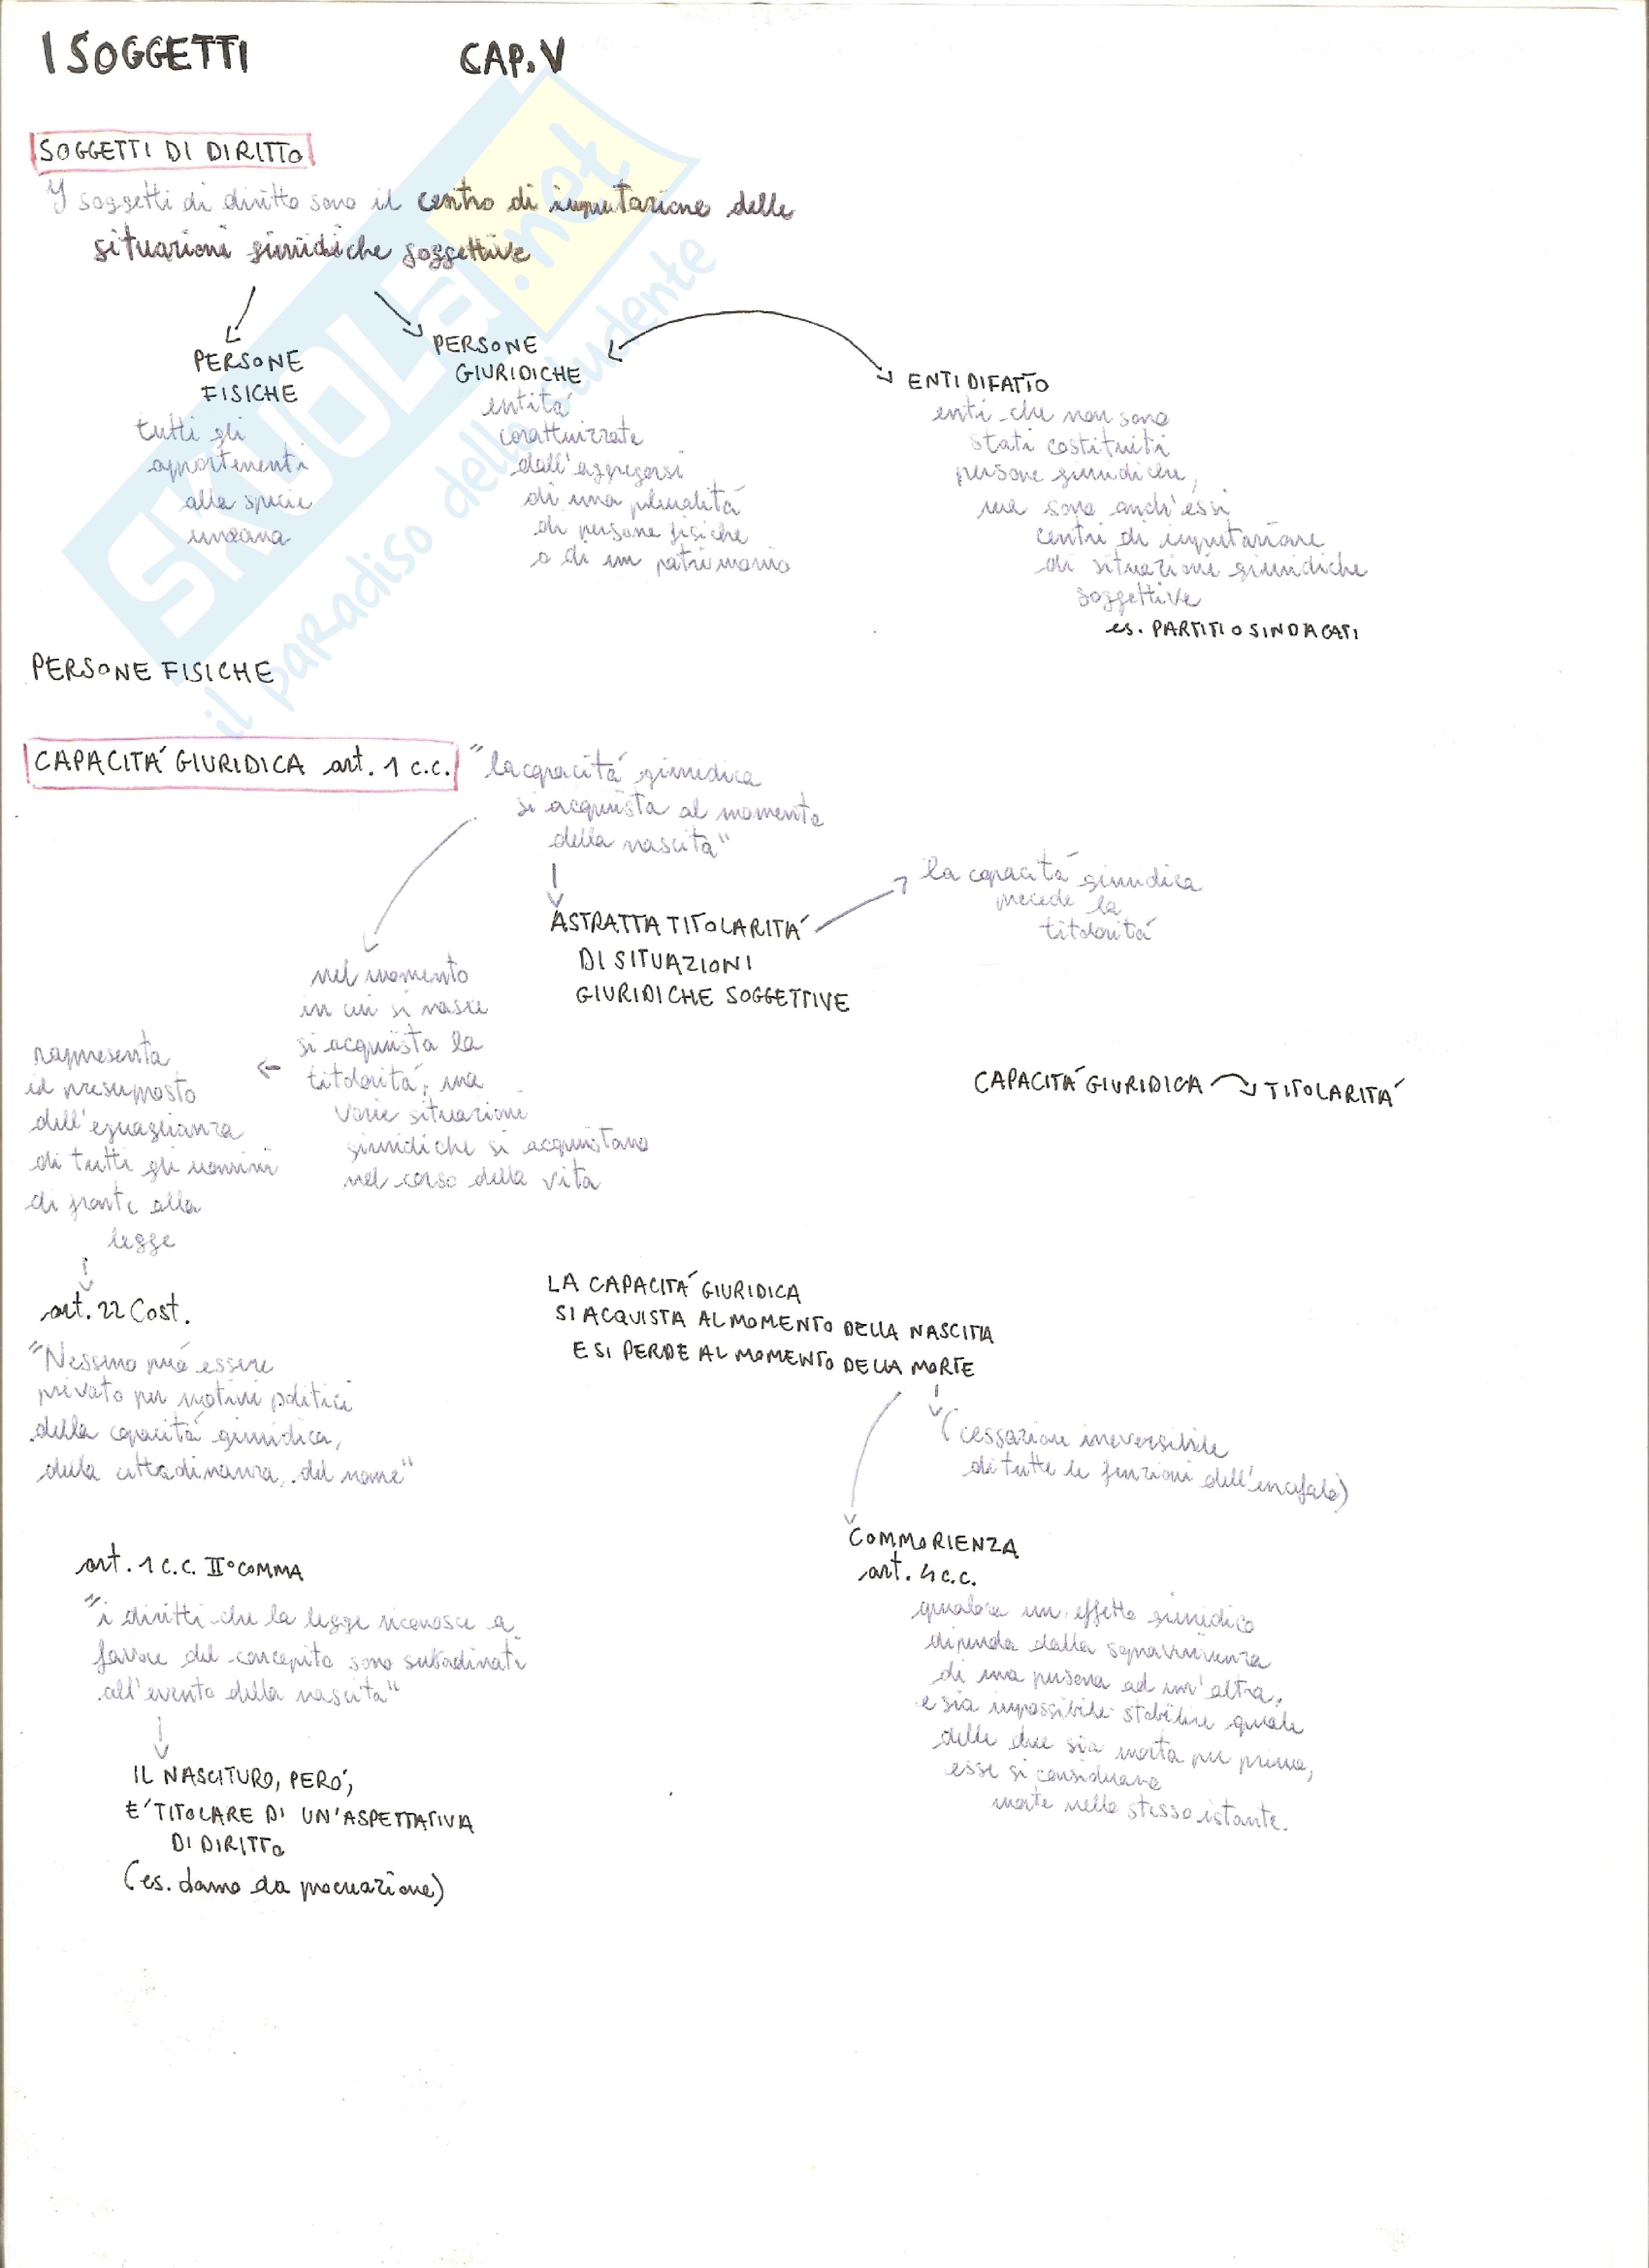 I SOGGETTI CAP. V
SOGGETTI DI DIRITTO
I soggetti di diritto sono il centro di imputazione delle
situazioni giuridiche soggettive
PERSONE
FISICHE
tutti gli
appartenenti
alla specie
umana
PERSONE
GIURIDICHE
entità
caratterizzate
dall'aggregarsi
di una pluralità
di persone fisiche
o di un patrimonio
ENTI DI FATTO
enti che non sono
stati costituiti
persone giuridiche,
ma sono anch'essi
centri di imputazione
di situazioni giuridiche
soggettive
es. PARTITI O SINDACATI
PERSONE FISICHE
CAPACITÁ GIURIDICA art. 1 c.c.
"la capacitá giuridica
si acquista al momento
della nascita"
ASTRATTA TITOLARITÁ
DI SITUAZIONI
GIURIDICHE SOGGETTIVE
la capacitá giuridica
precede la
titolaritá
nel momento
in cui si nasce
si acquista la
titolaritá, ma
varie situazioni
giuridiche si acquistano
nel corso della vita
rappresenta
il presupposto
dell'eguaglianza
di tutti gli uomini
di fronte alla
legge
CAPACITÁ GIURIDICA TITOLARITÁ
art. 22 Cost.
"Nessuno puó essere
privato per motivi politici
della capacitá giuridica,
della cittadinanza, del nome"
LA CAPACITÁ GIURIDICA
SI ACQUISTA AL MOMENTO DELLA NASCITA
E SI PERDE AL MOMENTO DELLA MORTE
(cessazione irreversibile
di tutte le funzioni dell'encefalo)
COMMORIENZA
art. 4 c.c.
qualora un effetto giuridico
dipenda dalla sopravvivenza
di una persona ad un'altra,
e sia impossibile stabilire quale
delle due sia morta per prima,
esse si considerano
morte nello stesso istante.
art. 1 c.c. II° COMMA
"i diritti che la legge riconosce a
favore del concepito sono subordinati
all'evento della nascita"
IL NASCITURO, PERÓ,
É TITOLARE DI UN'ASPETTATIVA
DI DIRITTO
(es. danno da procreazione)
SKUOLa.net
il paRadiso dello studente